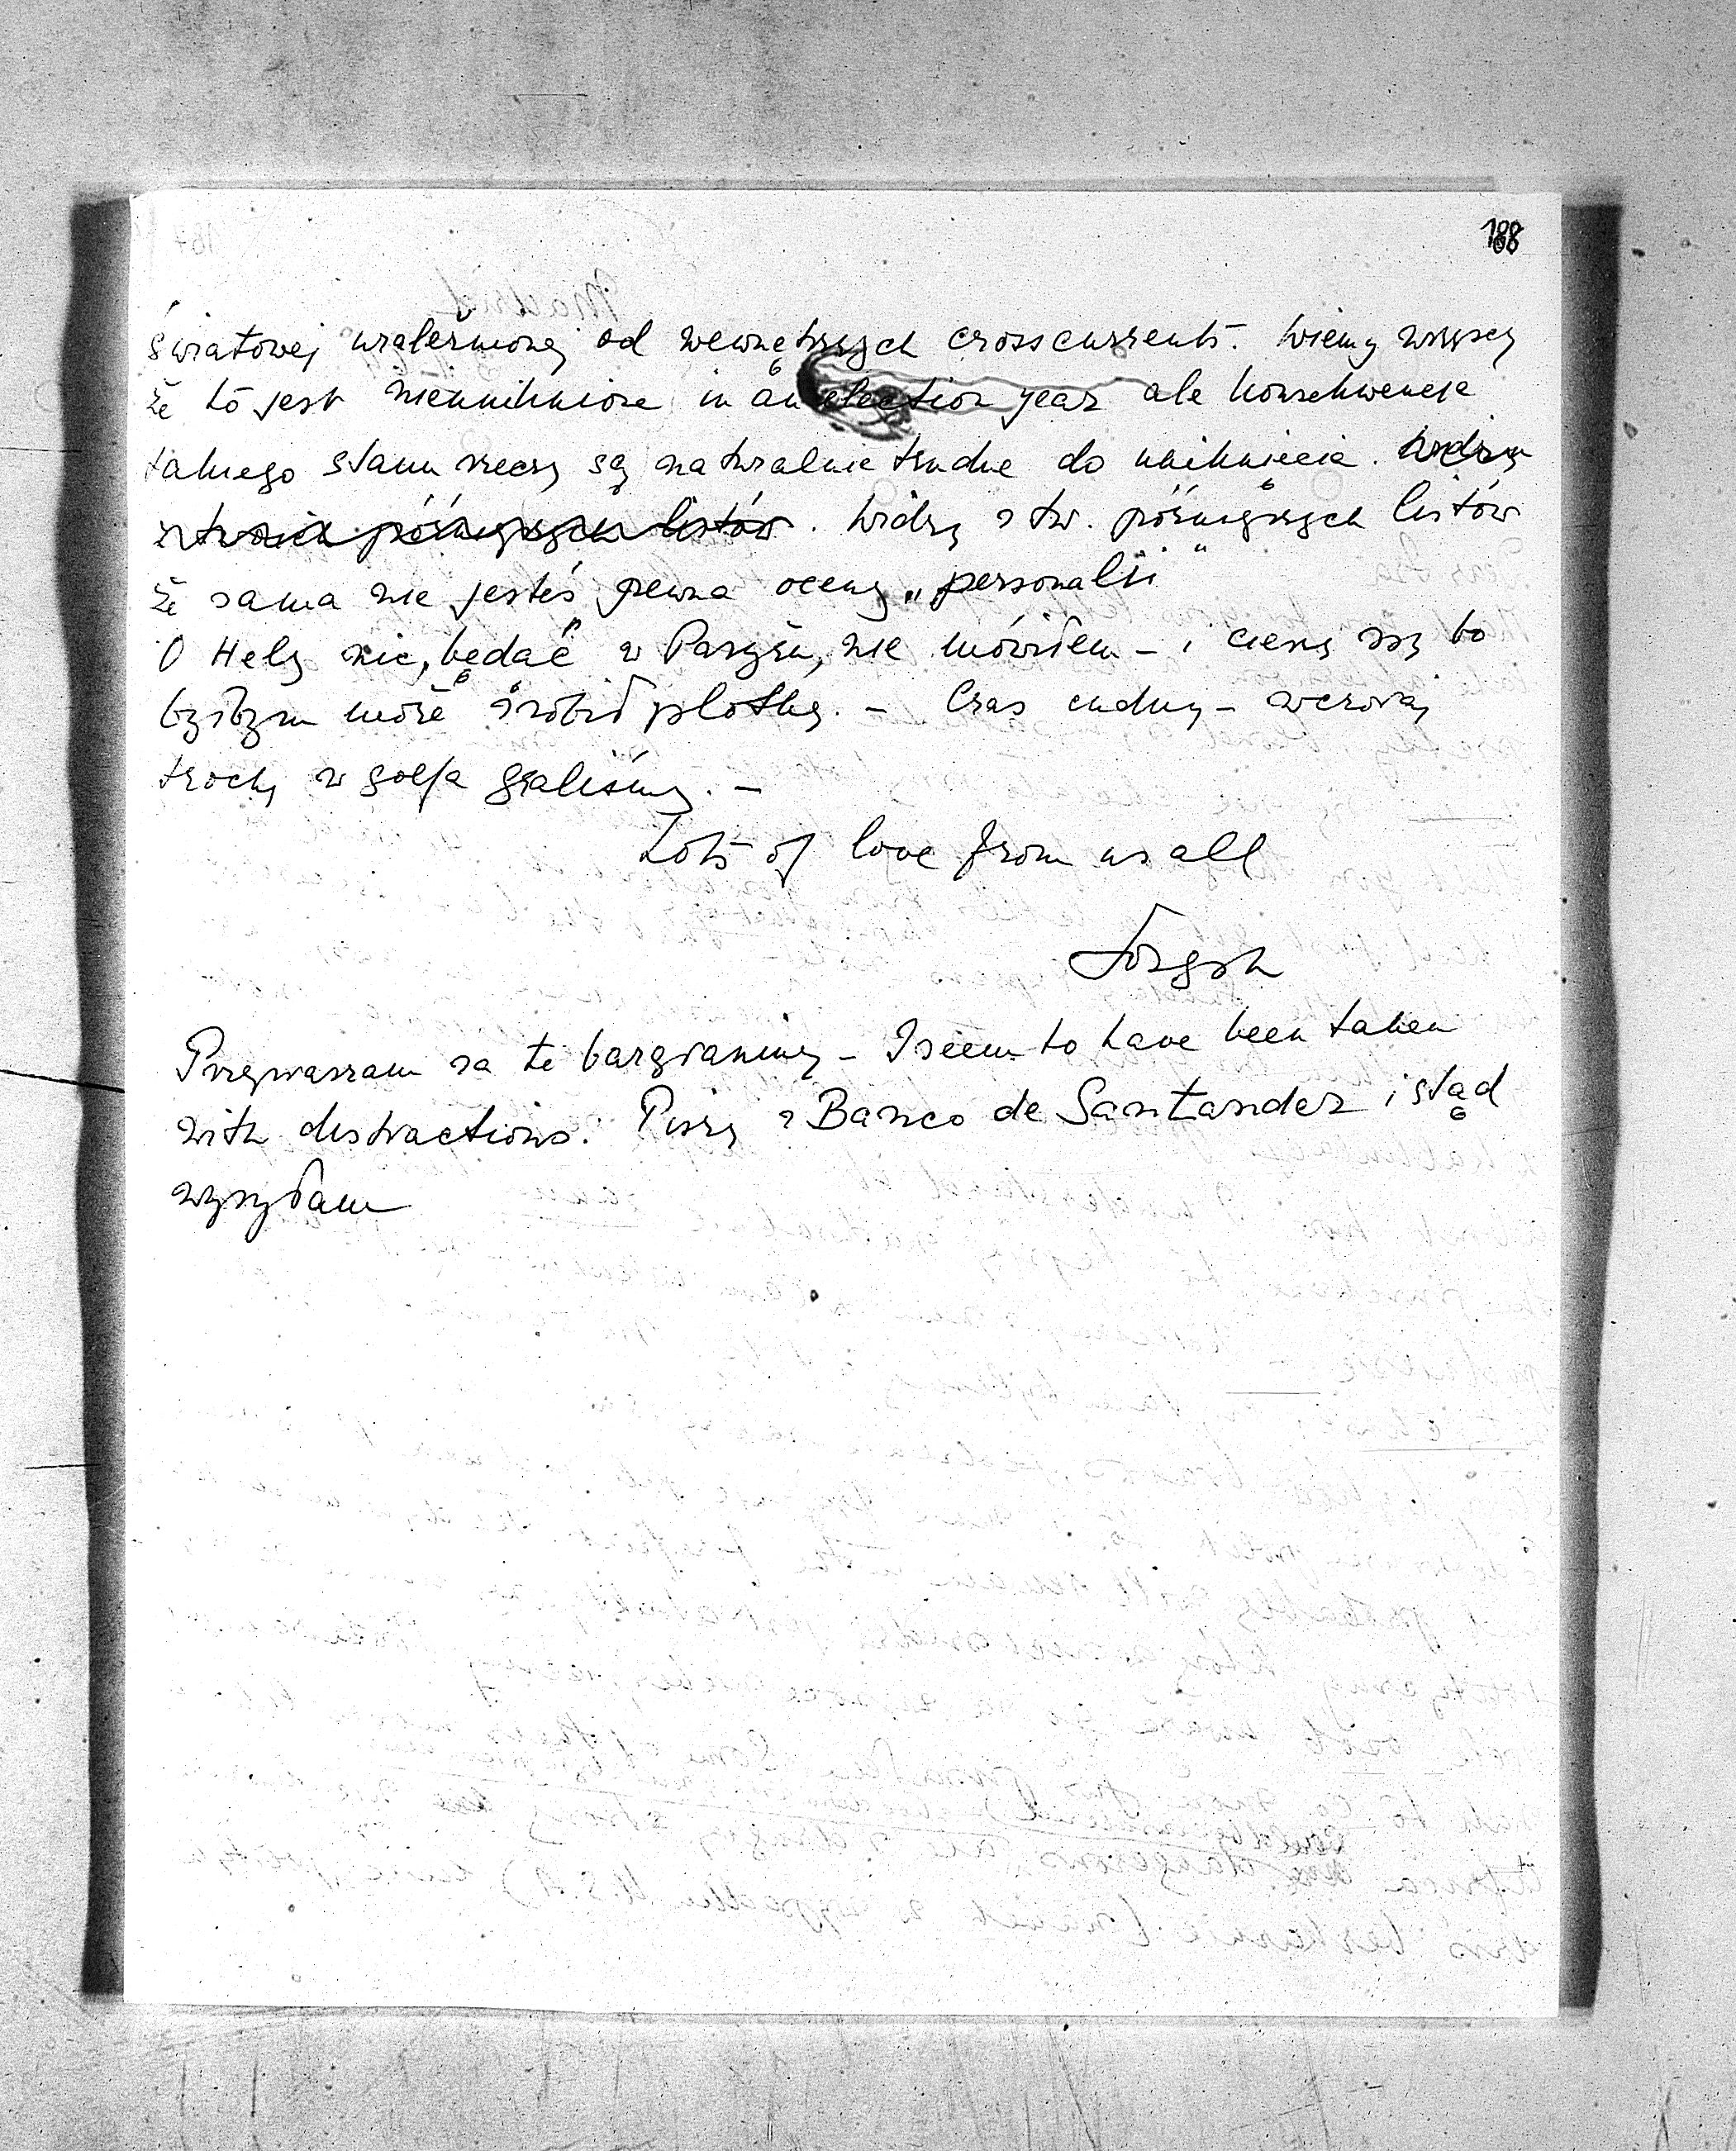 188
światowej uzależnionej od wewnętrznych crosscurrents. Wiemy wszyscy
że to jest nieuniknione in an election year ale konsekwencje
takiego stanu rzeczy są naturalnie trudne do uniknięcia. Widzę
z twoich późniejszych listów. Widzę z tw. późniejszych listów
że sama nie jesteś pewna oceny „personalii"
O Helę nic, będąc w Paryżu, nie mówiłem – i cieszę się bo
byłbym może zrobił plotkę. – Czas cudny – wczoraj
trochę w golfa graliśmy. –
Lots of love from us all
Przepraszam za te bazgraniny – I seem to have been taken
with distractions. Piszę z Banco de Santander i stąd
wysyłam